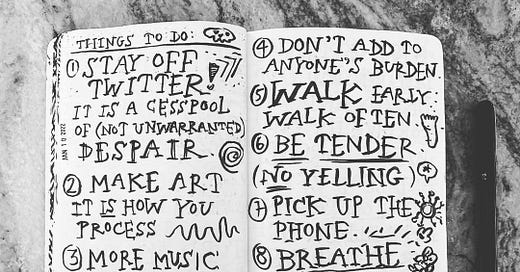 THINGS TO DO:
① STAY OFF
TWITTER!
IT IS A CESSPOOL
OF (NOT UNWARRANTED)
DESPAIR.
② MAKE ART
IT IS HOW YOU
PROCESS
③ MORE MUSIC
JAN 10 2022
④ DON'T ADD TO
ANYONE'S BURDEN.
⑤ WALK EARLY.
WALK OFTEN.
⑥ BE TENDER.
(NO YELLING)
⑦ PICK UP THE
PHONE.
⑧ BREATHE